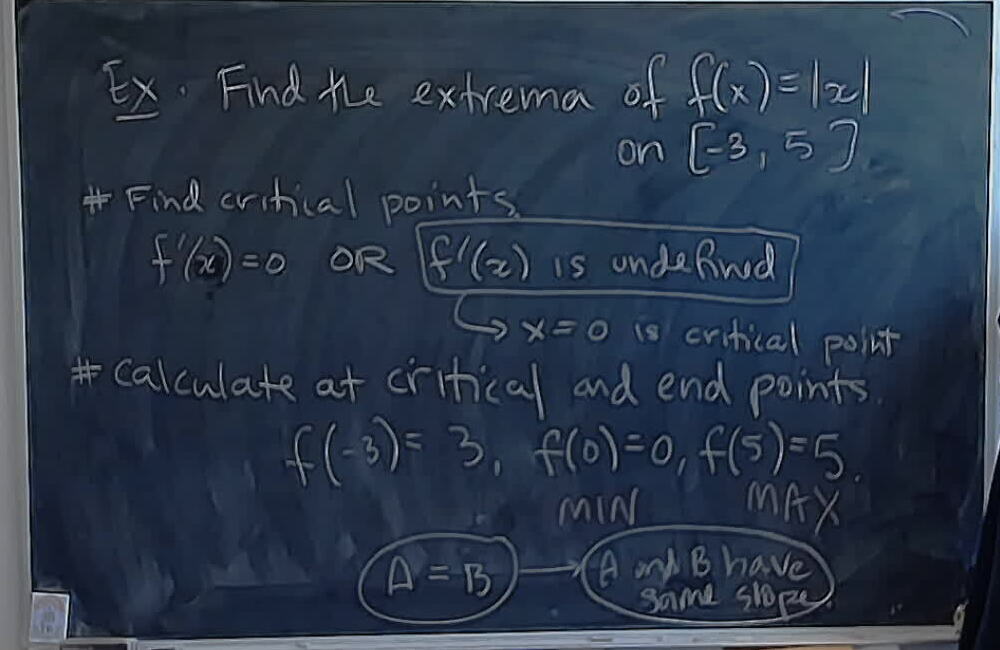 Ex. Find the extrema of f(x)=|x|
on [-3, 5]
# Find critical points.
f'(x)=0 OR f'(x) is undefined
→ x=0 is critical point
# Calculate at critical and end points.
f(-3)=3, f(0)=0, f(5)=5.
MIN MAX
A = B → A and B have
same slope.